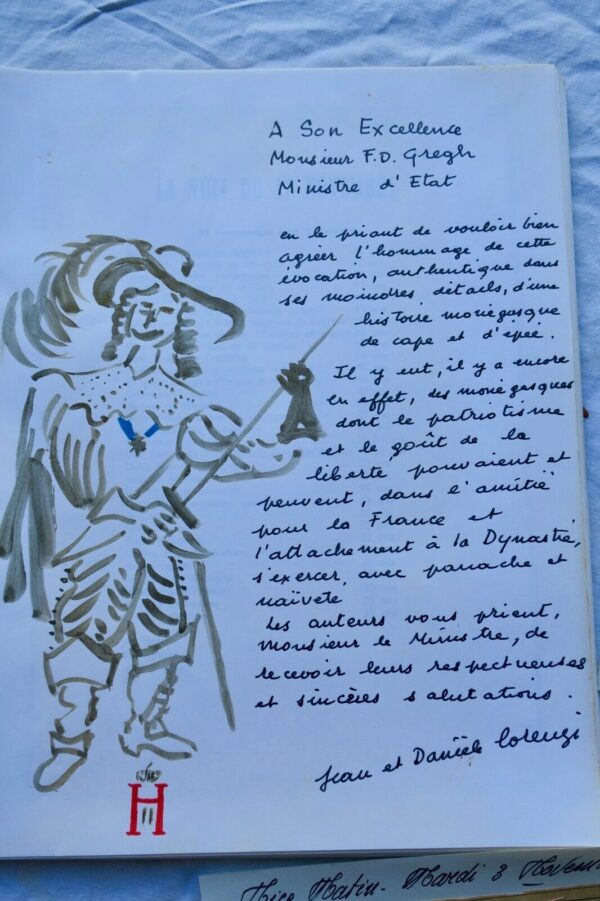 A Son Excellence
Monsieur F.D. Gregh
Ministre d'Etat
en le priant de vouloir bien
agréer l'hommage de cette
évocation, authentique dans
ses moindres détails, d'une
histoire monégasque
de cape et d'épée.
Il y eut, il y a encore
en effet, des monégasques
dont le patriotisme
et le goût de la
liberté pouvaient et
peuvent, dans l'amitié
pour la France et
l'attachement à la Dynastie,
s'exercer, avec panache et
naïveté
Les auteurs vous prient,
Monsieur le Ministre, de
recevoir leurs respectueuses
et sincères salutations.
Jean et Danièle Lorenzi
H
II
Nice Matin - Mardi 3 Novem